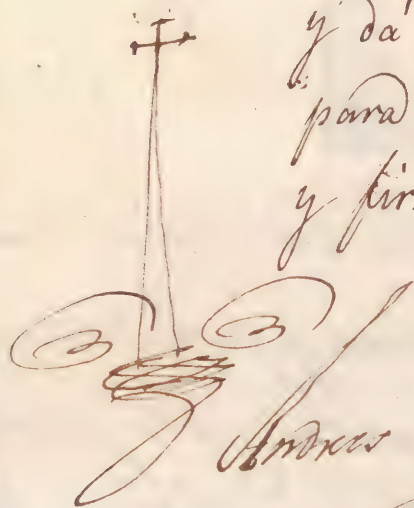 y da
para
y fir
Andres